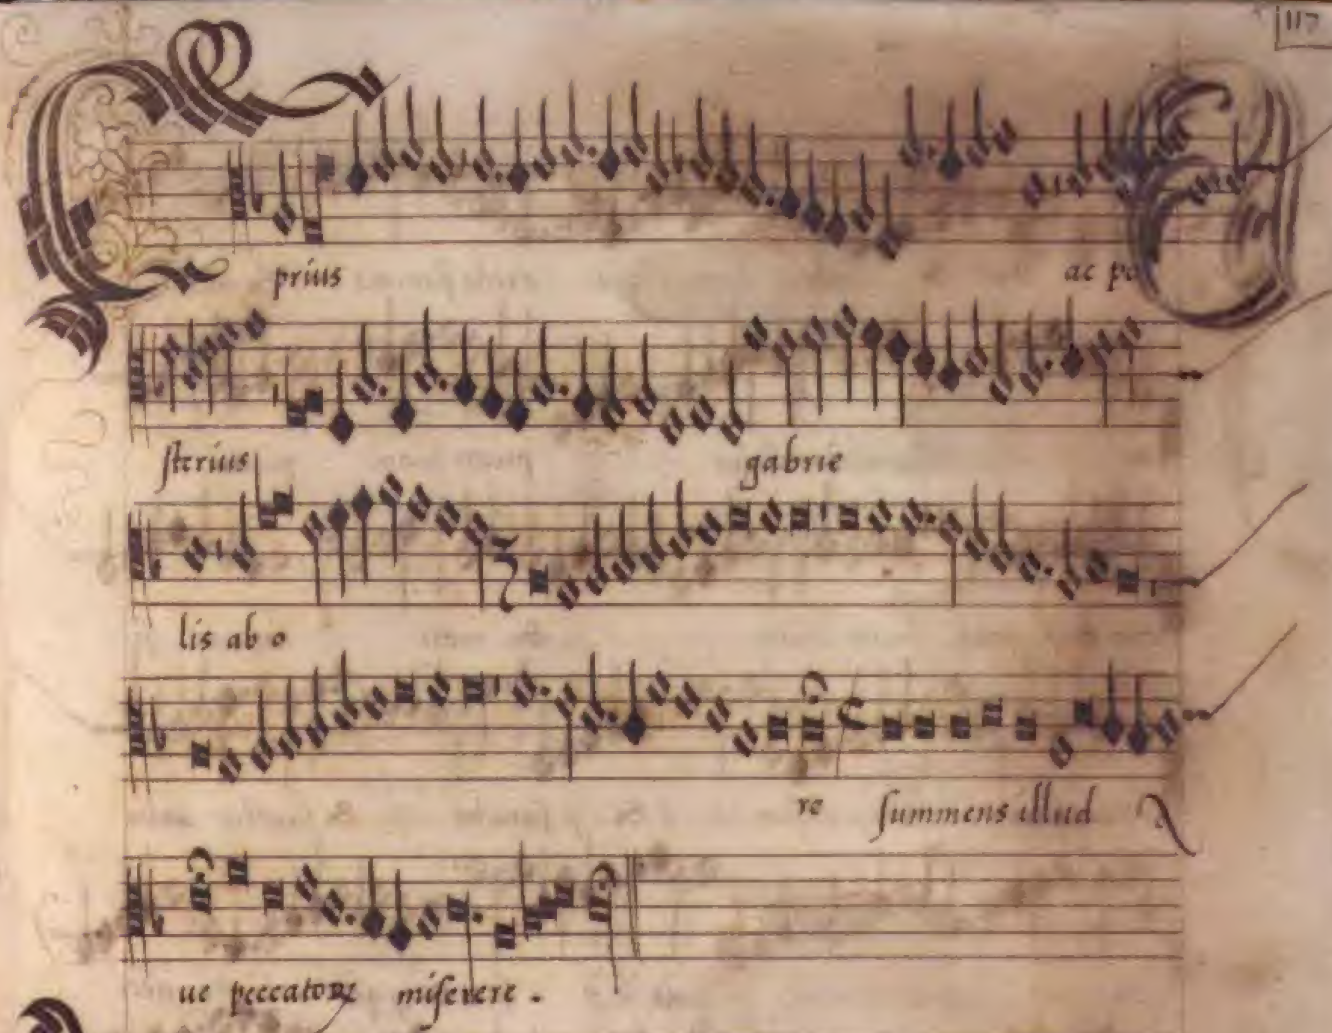 117
prius ac po
sterius gabrie
lis ab o
re summens illud A
ue peccatorum miserere .